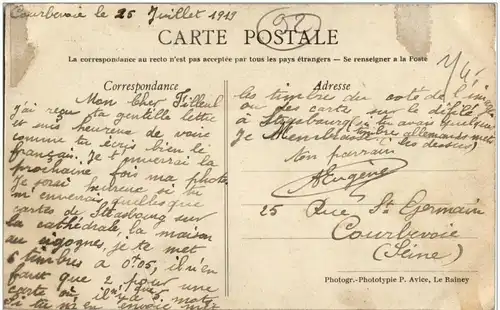 Courbevoie le 25 Juillet 1919
92
CARTE POSTALE
La correspondance au recto n'est pas acceptée par tous les pays étrangers — Se renseigner à la Poste
Correspondance
Mon Cher Filleul
J'ai reçu ta gentille lettre
et suis heureux de voir
comme tu écris bien le
français. Je t'enverrai la
prochaine fois ma photo.
Je serai heureux si tu
m'enverais quelques
cartes de Strasbourg sur
la cathédrale, la maison
au cigognes, je te met
timbres a 0f05, il n'en
faut que 2 pour une
carte ou il n'y a que 5 mots
Si tu m'en envoie met
Adresse
les timbre du coté de l'image
ou des carte sur le défilé
à Strasbourg (si tu avais quelques
timbre allemands met
Je les dessus)
Ton parrain
Eugène
25 Rue St Germain
Courbevoie
(Seine)
Photogr.-Phototypie P. Avice, Le Rainey